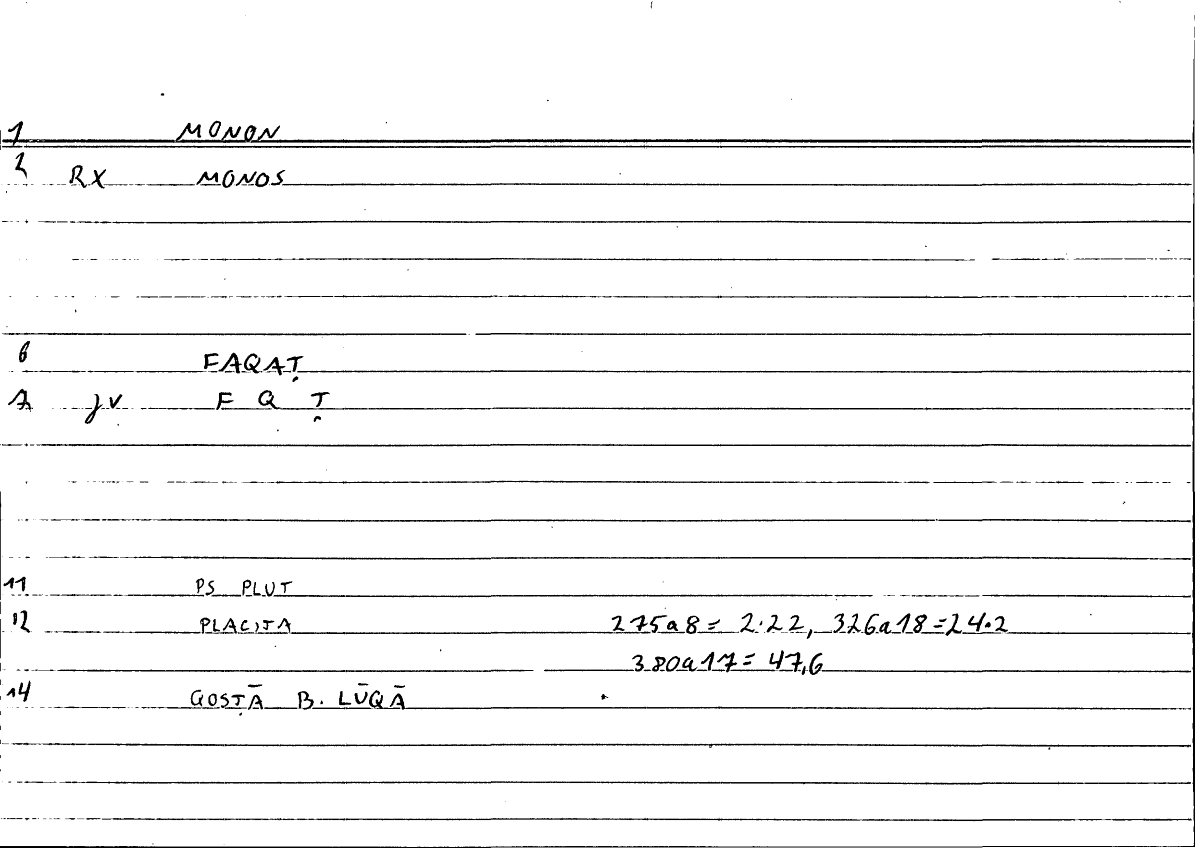 1 MONON
2 RX MONOS
6 FAQAṬ
7 JV F Q Ṭ
11 PS PLUT
12 PLACITA 275a8 = 2.22, 326a18 = 24.2
380a17 = 47,6
14 QOSṬĀ B. LŪQĀ